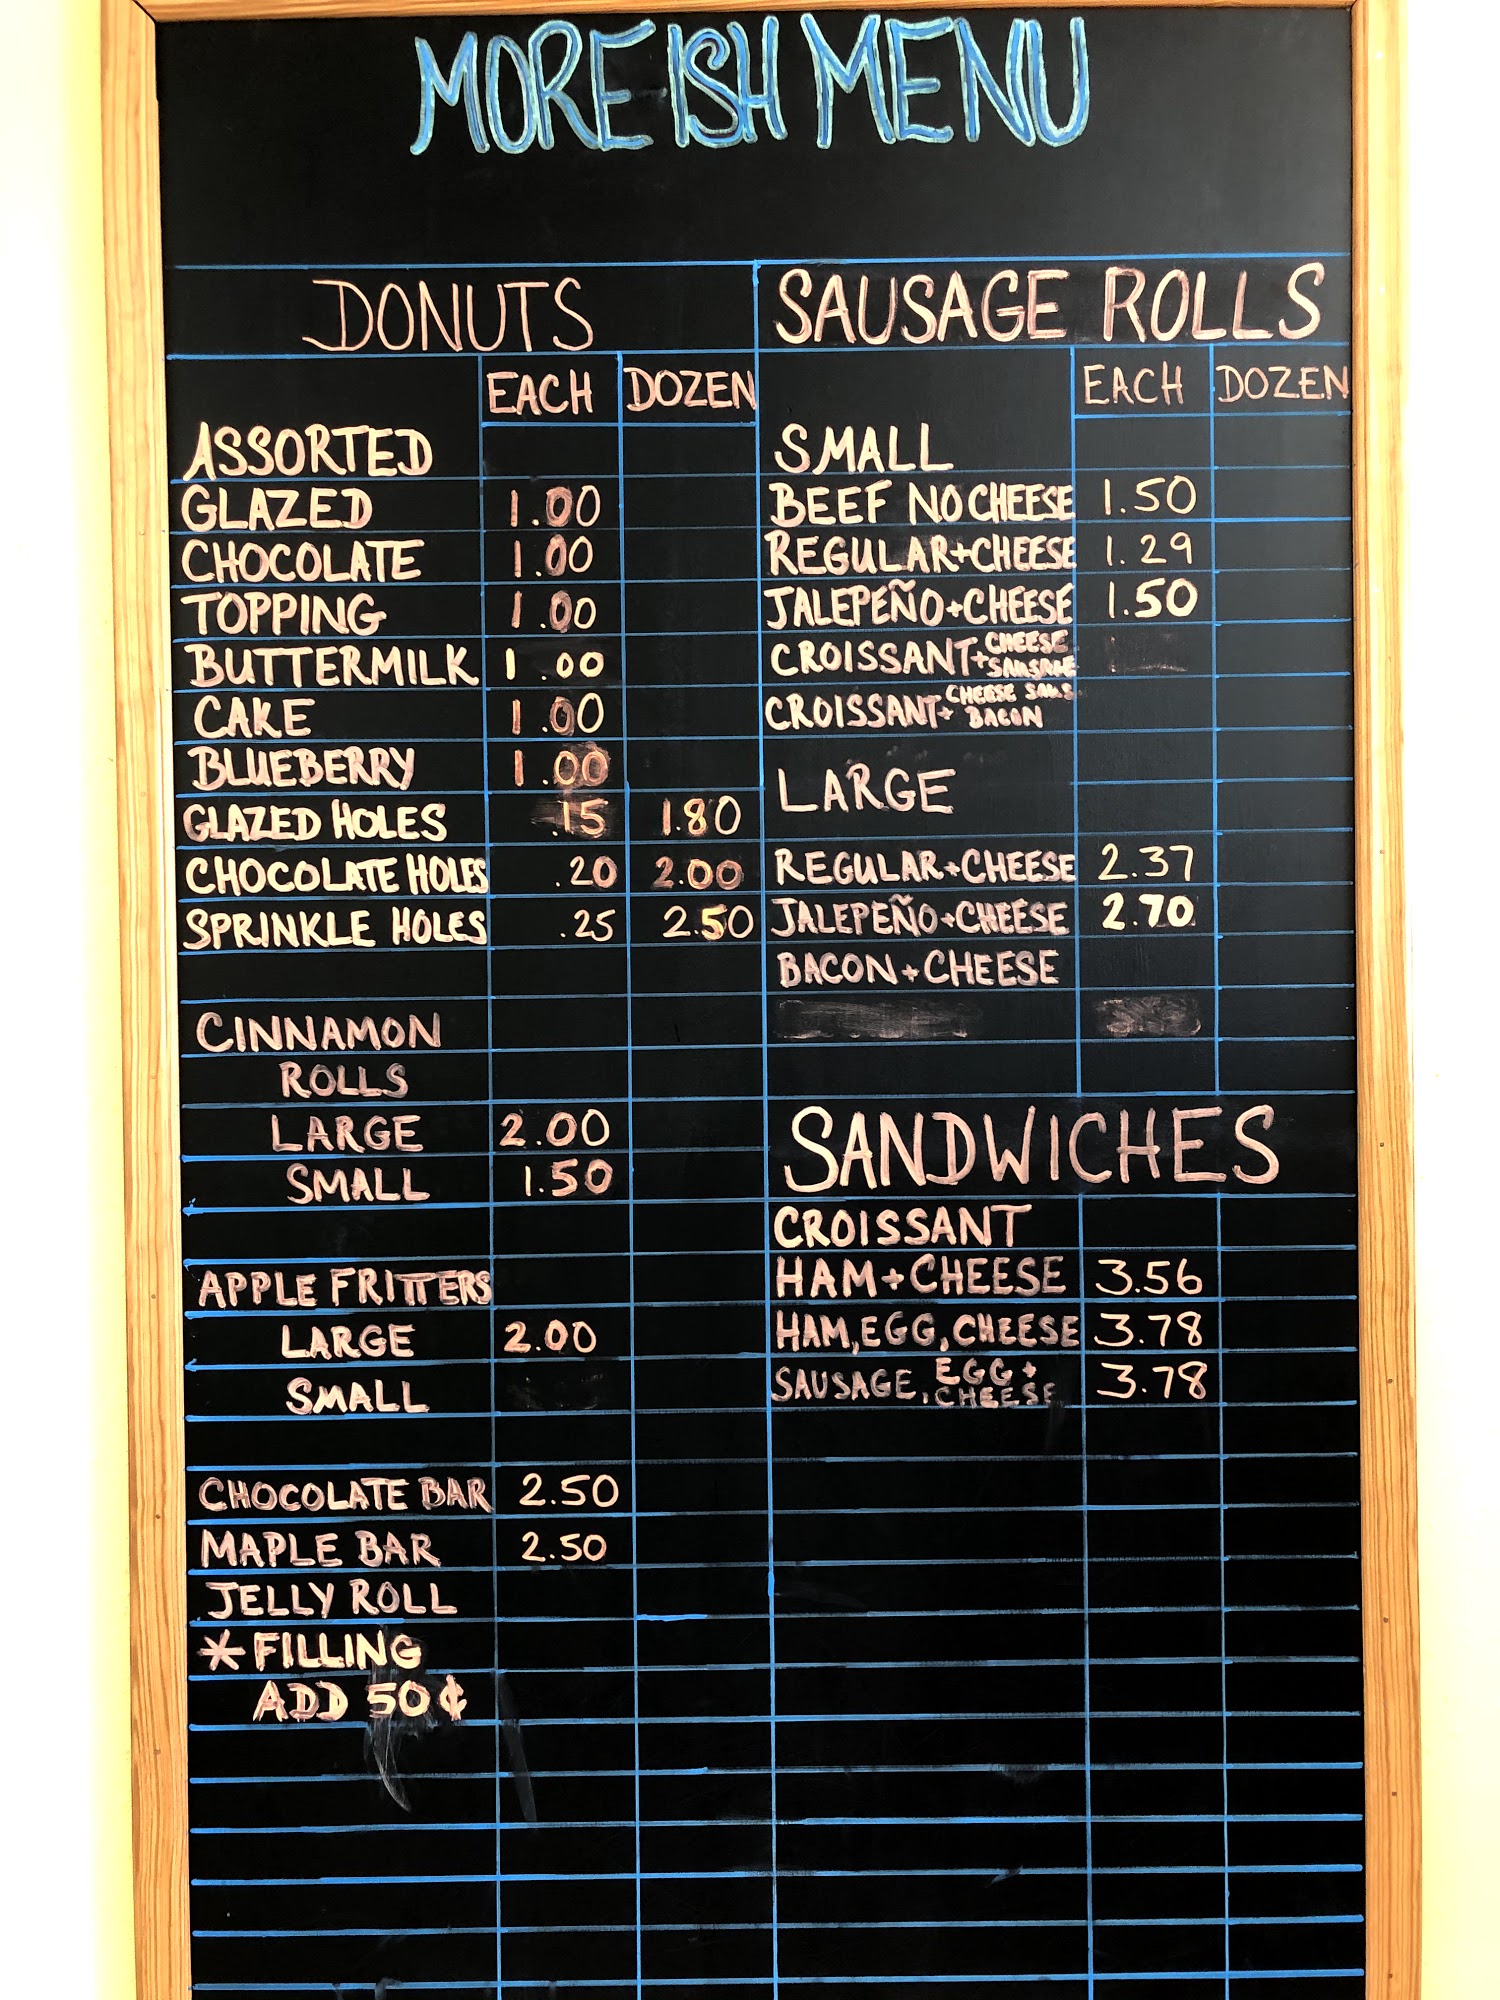 MOREISH MENU
DONUTS
EACH DOZEN
ASSORTED
GLAZED 1.00
CHOCOLATE 1.00
TOPPING 1.00
BUTTERMILK 1.00
CAKE 1.00
BLUEBERRY 1.00
GLAZED HOLES .15 1.80
CHOCOLATE HOLES .20 2.00
SPRINKLE HOLES .25 2.50
CINNAMON
ROLLS
LARGE 2.00
SMALL 1.50
APPLE FRITTERS
LARGE 2.00
SMALL
CHOCOLATE BAR 2.50
MAPLE BAR 2.50
JELLY ROLL
*FILLING
ADD 50¢
SAUSAGE ROLLS
EACH DOZEN
SMALL
BEEF NO CHEESE 1.50
REGULAR+CHEESE 1.29
JALEPEÑO+CHEESE 1.50
CROISSANT+CHEESE SAUSAGE
CROISSANT+CHEESE SAUS. BACON
LARGE
REGULAR+CHEESE 2.37
JALEPEÑO+CHEESE 2.70
BACON+CHEESE
SANDWICHES
CROISSANT
HAM+CHEESE 3.56
HAM, EGG, CHEESE 3.78
SAUSAGE, EGG + CHEESE 3.78